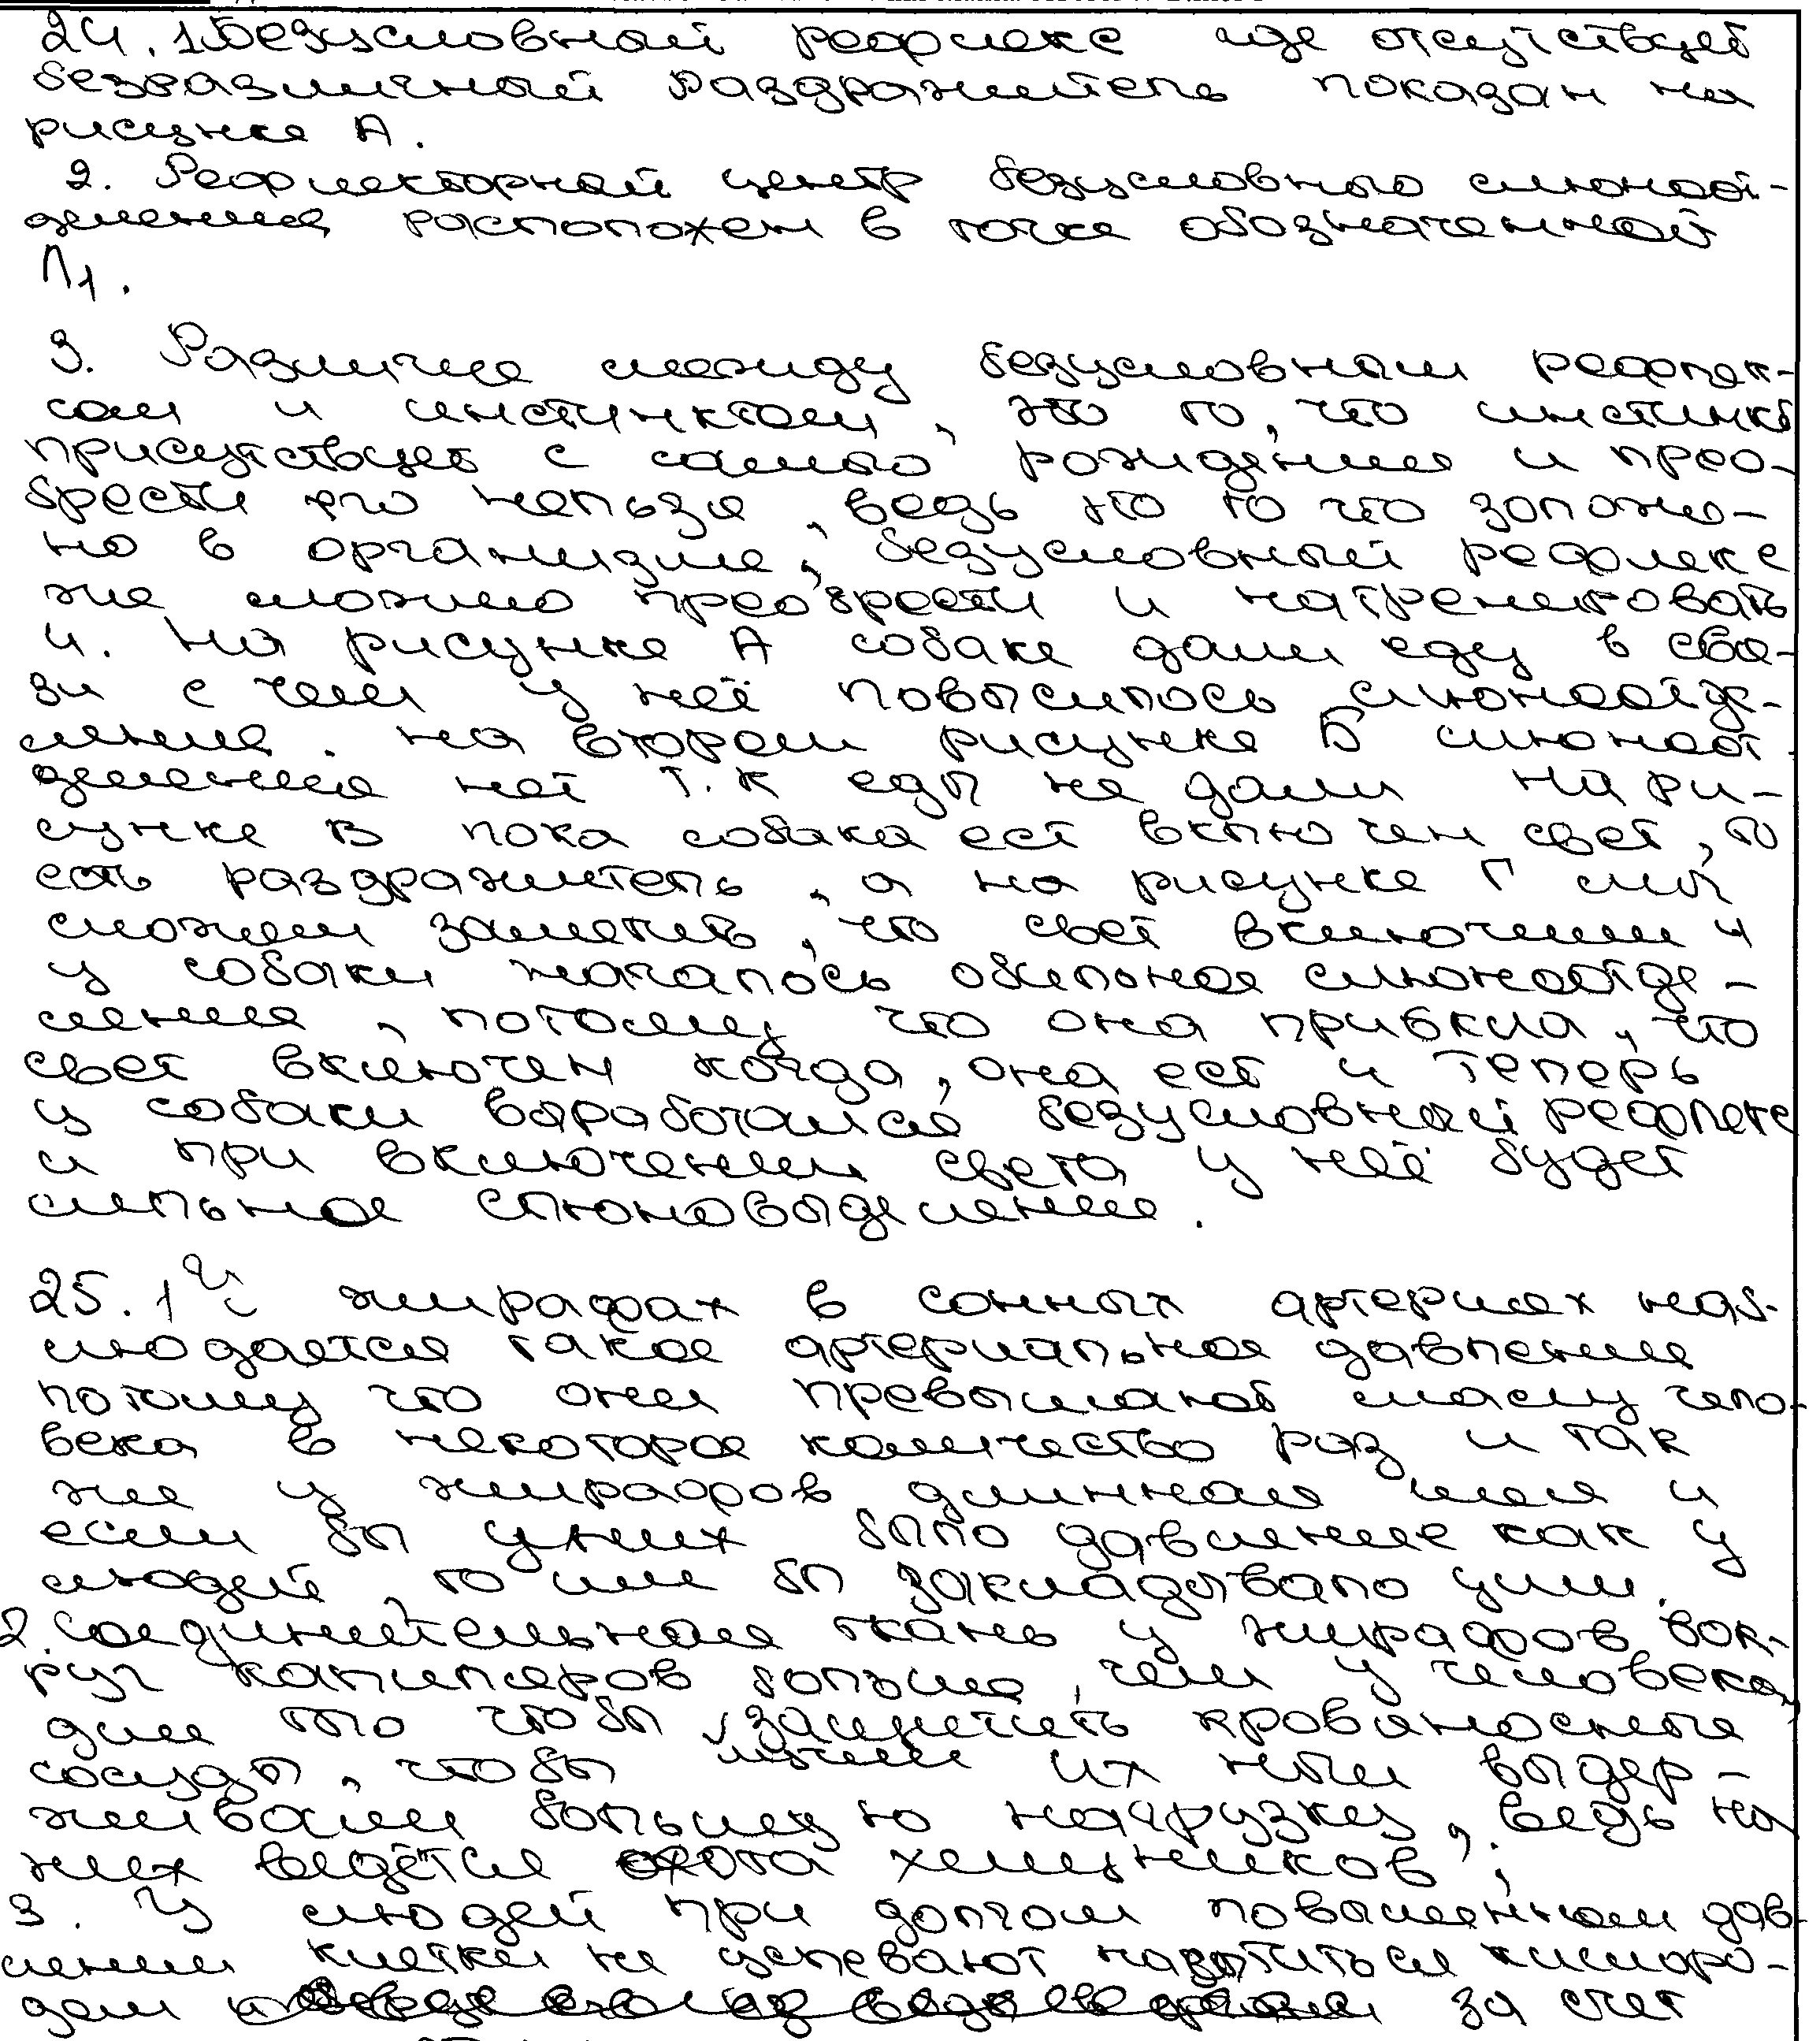 24. 1. Безусловный рефлекс где отсутствует
безразличный раздражитель показан на
рисунке А.
2. Рефлекторный центр безусловного слюноот-
деления расположен в точке обозначенной
П1.
3. Различие между безусловным рефлек-
сом и инстинктом, это то, что инстинкт
присутствует с самого рождения и прео-
брести его нельзя, ведь это то что заложе-
но в организме, безусловный рефлекс
же можно преобрести и натренировать
4. На рисунке А собаке дали еду в свя-
зи с чем у неё повысилось слюноотде-
ление. На втором рисунке Б слюноот-
деления нет т.к еды не дали На ри-
сунке В пока собака ест включен свет, то
есть раздражитель, а на рисунке Г мы
сможем заметить, что свет включили и
у собаки началось обильное слюноотде-
ление, потому что она привкла, что
свет включен когда, она ест и теперь
у собаки выработался безусловный рефлекс
и при включении света у неё будет
сильное слюновыделение.
25. 1 У жирафах в сонных артериях наб-
людается такое артериальное давление
потому что они превышают массу чело-
века в некоторое количество раз и так
же у жирафов длинная шея и
если бы у них было давление как у
людей, то им бы закладывало уши.
2. Соединительная ткань у жирафов вок-
руг капиляров больше, чем у человека,
для того чтобы защитить кровяностные
сосуды, чтобы их ноги выдер-
живали большую нагрузку, ведь на
них ведётся охота хищников;
3. У людей при долгом повышенном дав-
лении клетки не успевают напитаться кислоро-
дом за счет